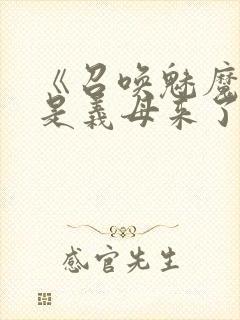 《召唤魅魔
是义母来了
感官先生